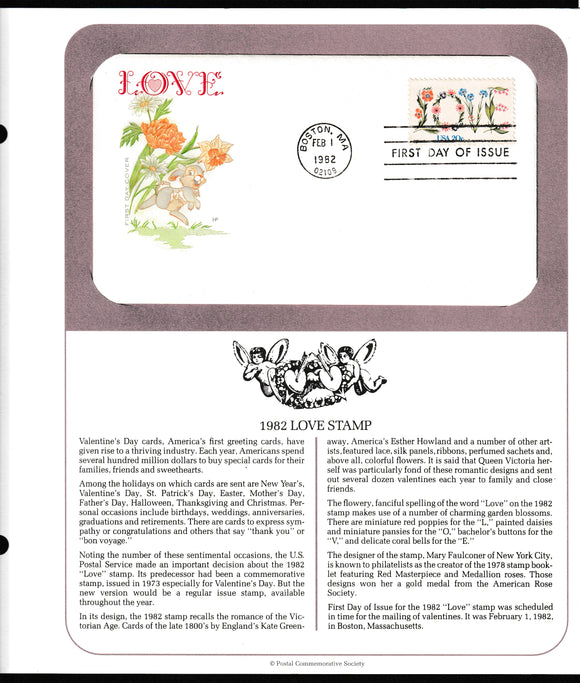 LOVE
FIRST DAY COVER
HF
BOSTON, MA
FEB 1
1982
02109
USA 20c
FIRST DAY OF ISSUE
1982 LOVE STAMP
Valentine's Day cards, America's first greeting cards, have
given rise to a thriving industry. Each year, Americans spend
several hundred million dollars to buy special cards for their
families, friends and sweethearts.
Among the holidays on which cards are sent are New Year's,
Valentine's Day, St. Patrick's Day, Easter, Mother's Day,
Father's Day, Halloween, Thanksgiving and Christmas. Per-
sonal occasions include birthdays, weddings, anniversaries,
graduations and retirements. There are cards to express sym-
pathy or congratulations and others that say "thank you" or
"bon voyage."
Noting the number of these sentimental occasions, the U.S.
Postal Service made an important decision about the 1982
"Love" stamp. Its predecessor had been a commemorative
stamp, issued in 1973 especially for Valentine's Day. But the
new version would be a regular issue stamp, available
throughout the year.
In its design, the 1982 stamp recalls the romance of the Vic-
torian Age. Cards of the late 1800's by England's Kate Green-
away, America's Esther Howland and a number of other art-
ists, featured lace, silk panels, ribbons, perfumed sachets and,
above all, colorful flowers. It is said that Queen Victoria her-
self was particularly fond of these romantic designs and sent
out several dozen valentines each year to family and close
friends.
The flowery, fanciful spelling of the word "Love" on the 1982
stamp makes use of a number of charming garden blossoms.
There are miniature red poppies for the "L," painted daisies
and miniature pansies for the "O," bachelor's buttons for the
"V," and delicate coral bells for the "E."
The designer of the stamp, Mary Faulconer of New York City,
is known to philatelists as the creator of the 1978 stamp book-
let featuring Red Masterpiece and Medallion roses. Those
designs won her a gold medal from the American Rose
Society.
First Day of Issue for the 1982 "Love" stamp was scheduled
in time for the mailing of valentines. It was February 1, 1982,
in Boston, Massachusetts.
© Postal Commemorative Society